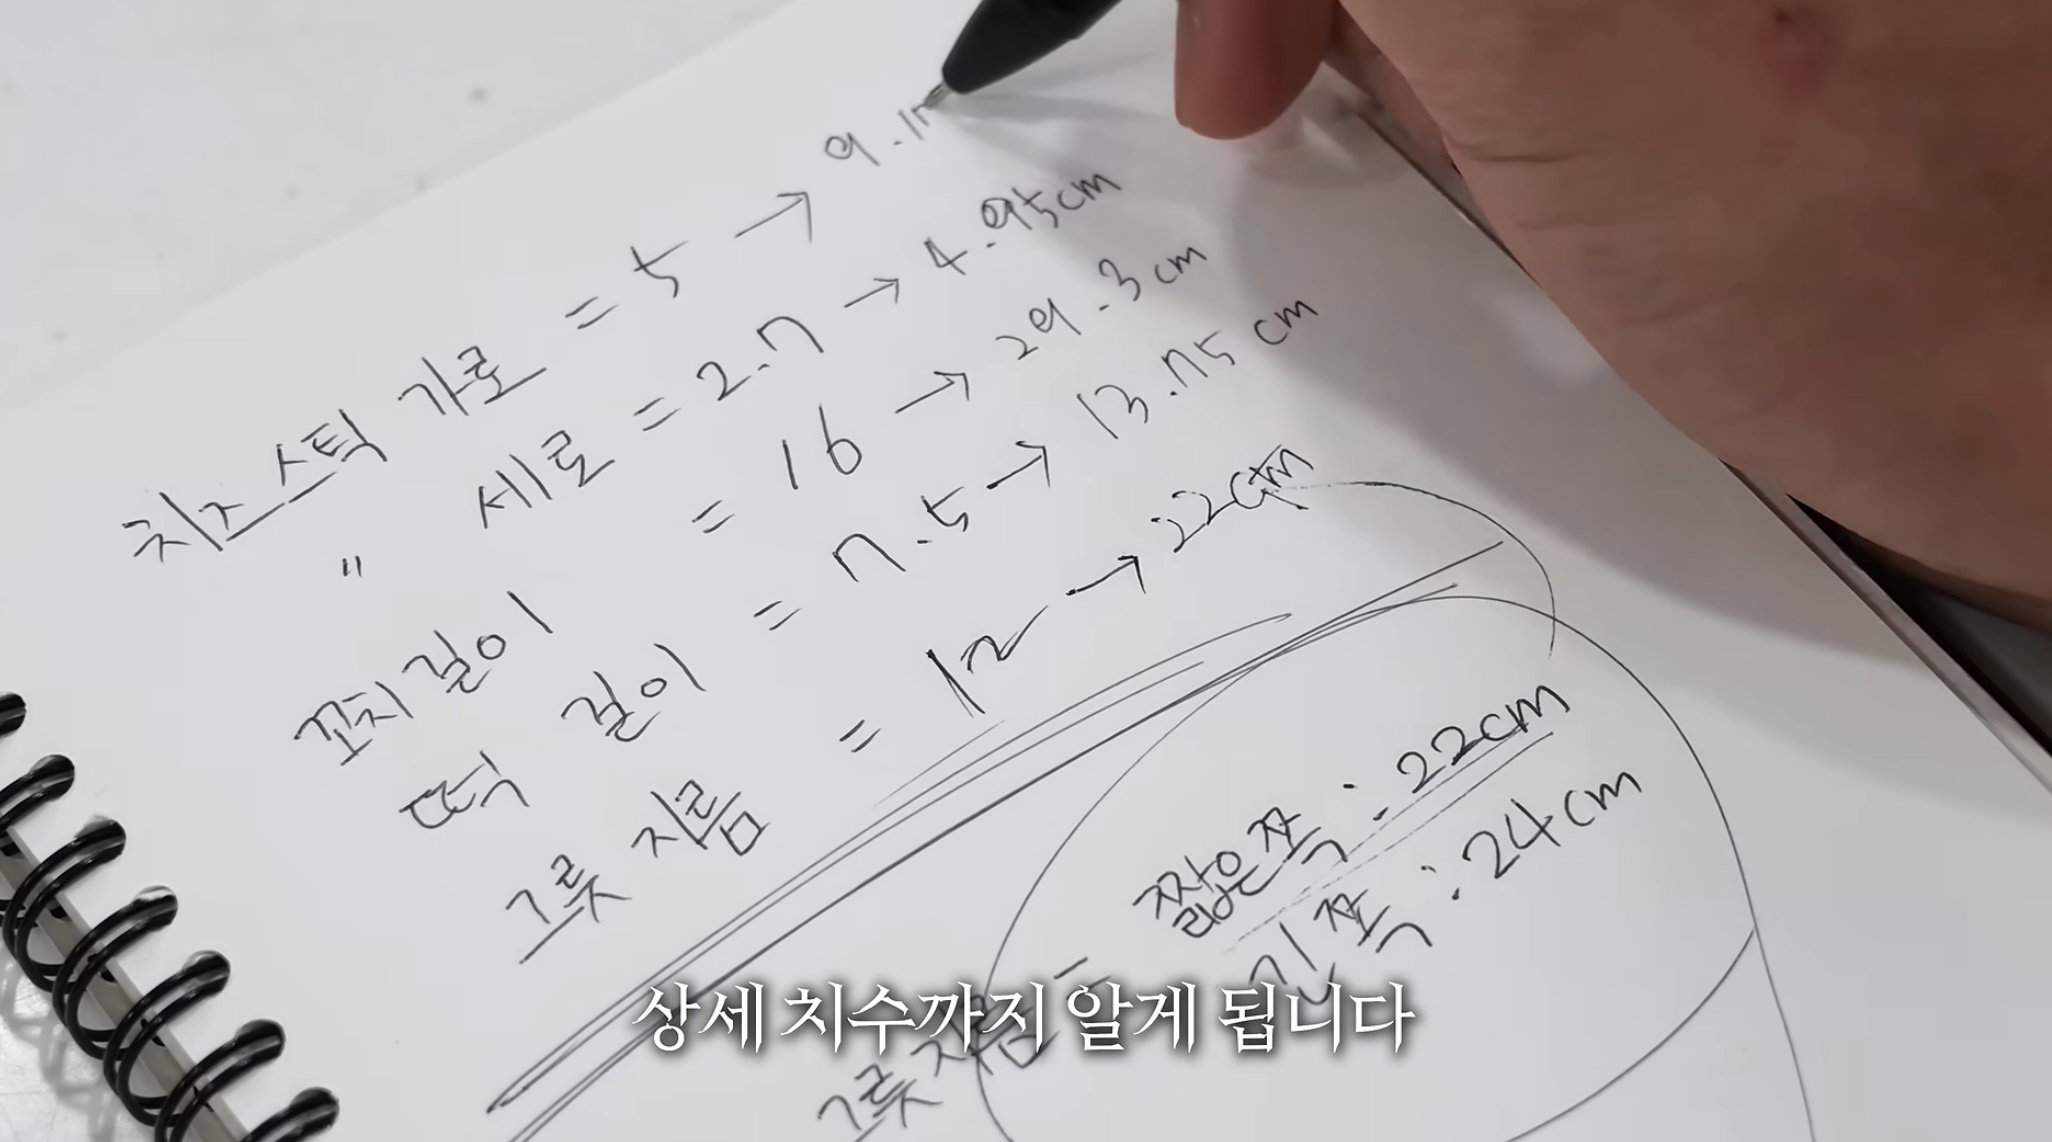 치즈스틱 가로 = 5 → 9.1
〃 세로 = 2.7 → 4.95cm
꼬치 길이 = 16 → 29.3cm
떡 길이 = 7.5 → 13.75cm
그릇 지름 = 12 → 22cm
그릇 지름 = 짧은쪽 : 22cm
긴쪽 : 24cm
상세 치수까지 알게 됩니다